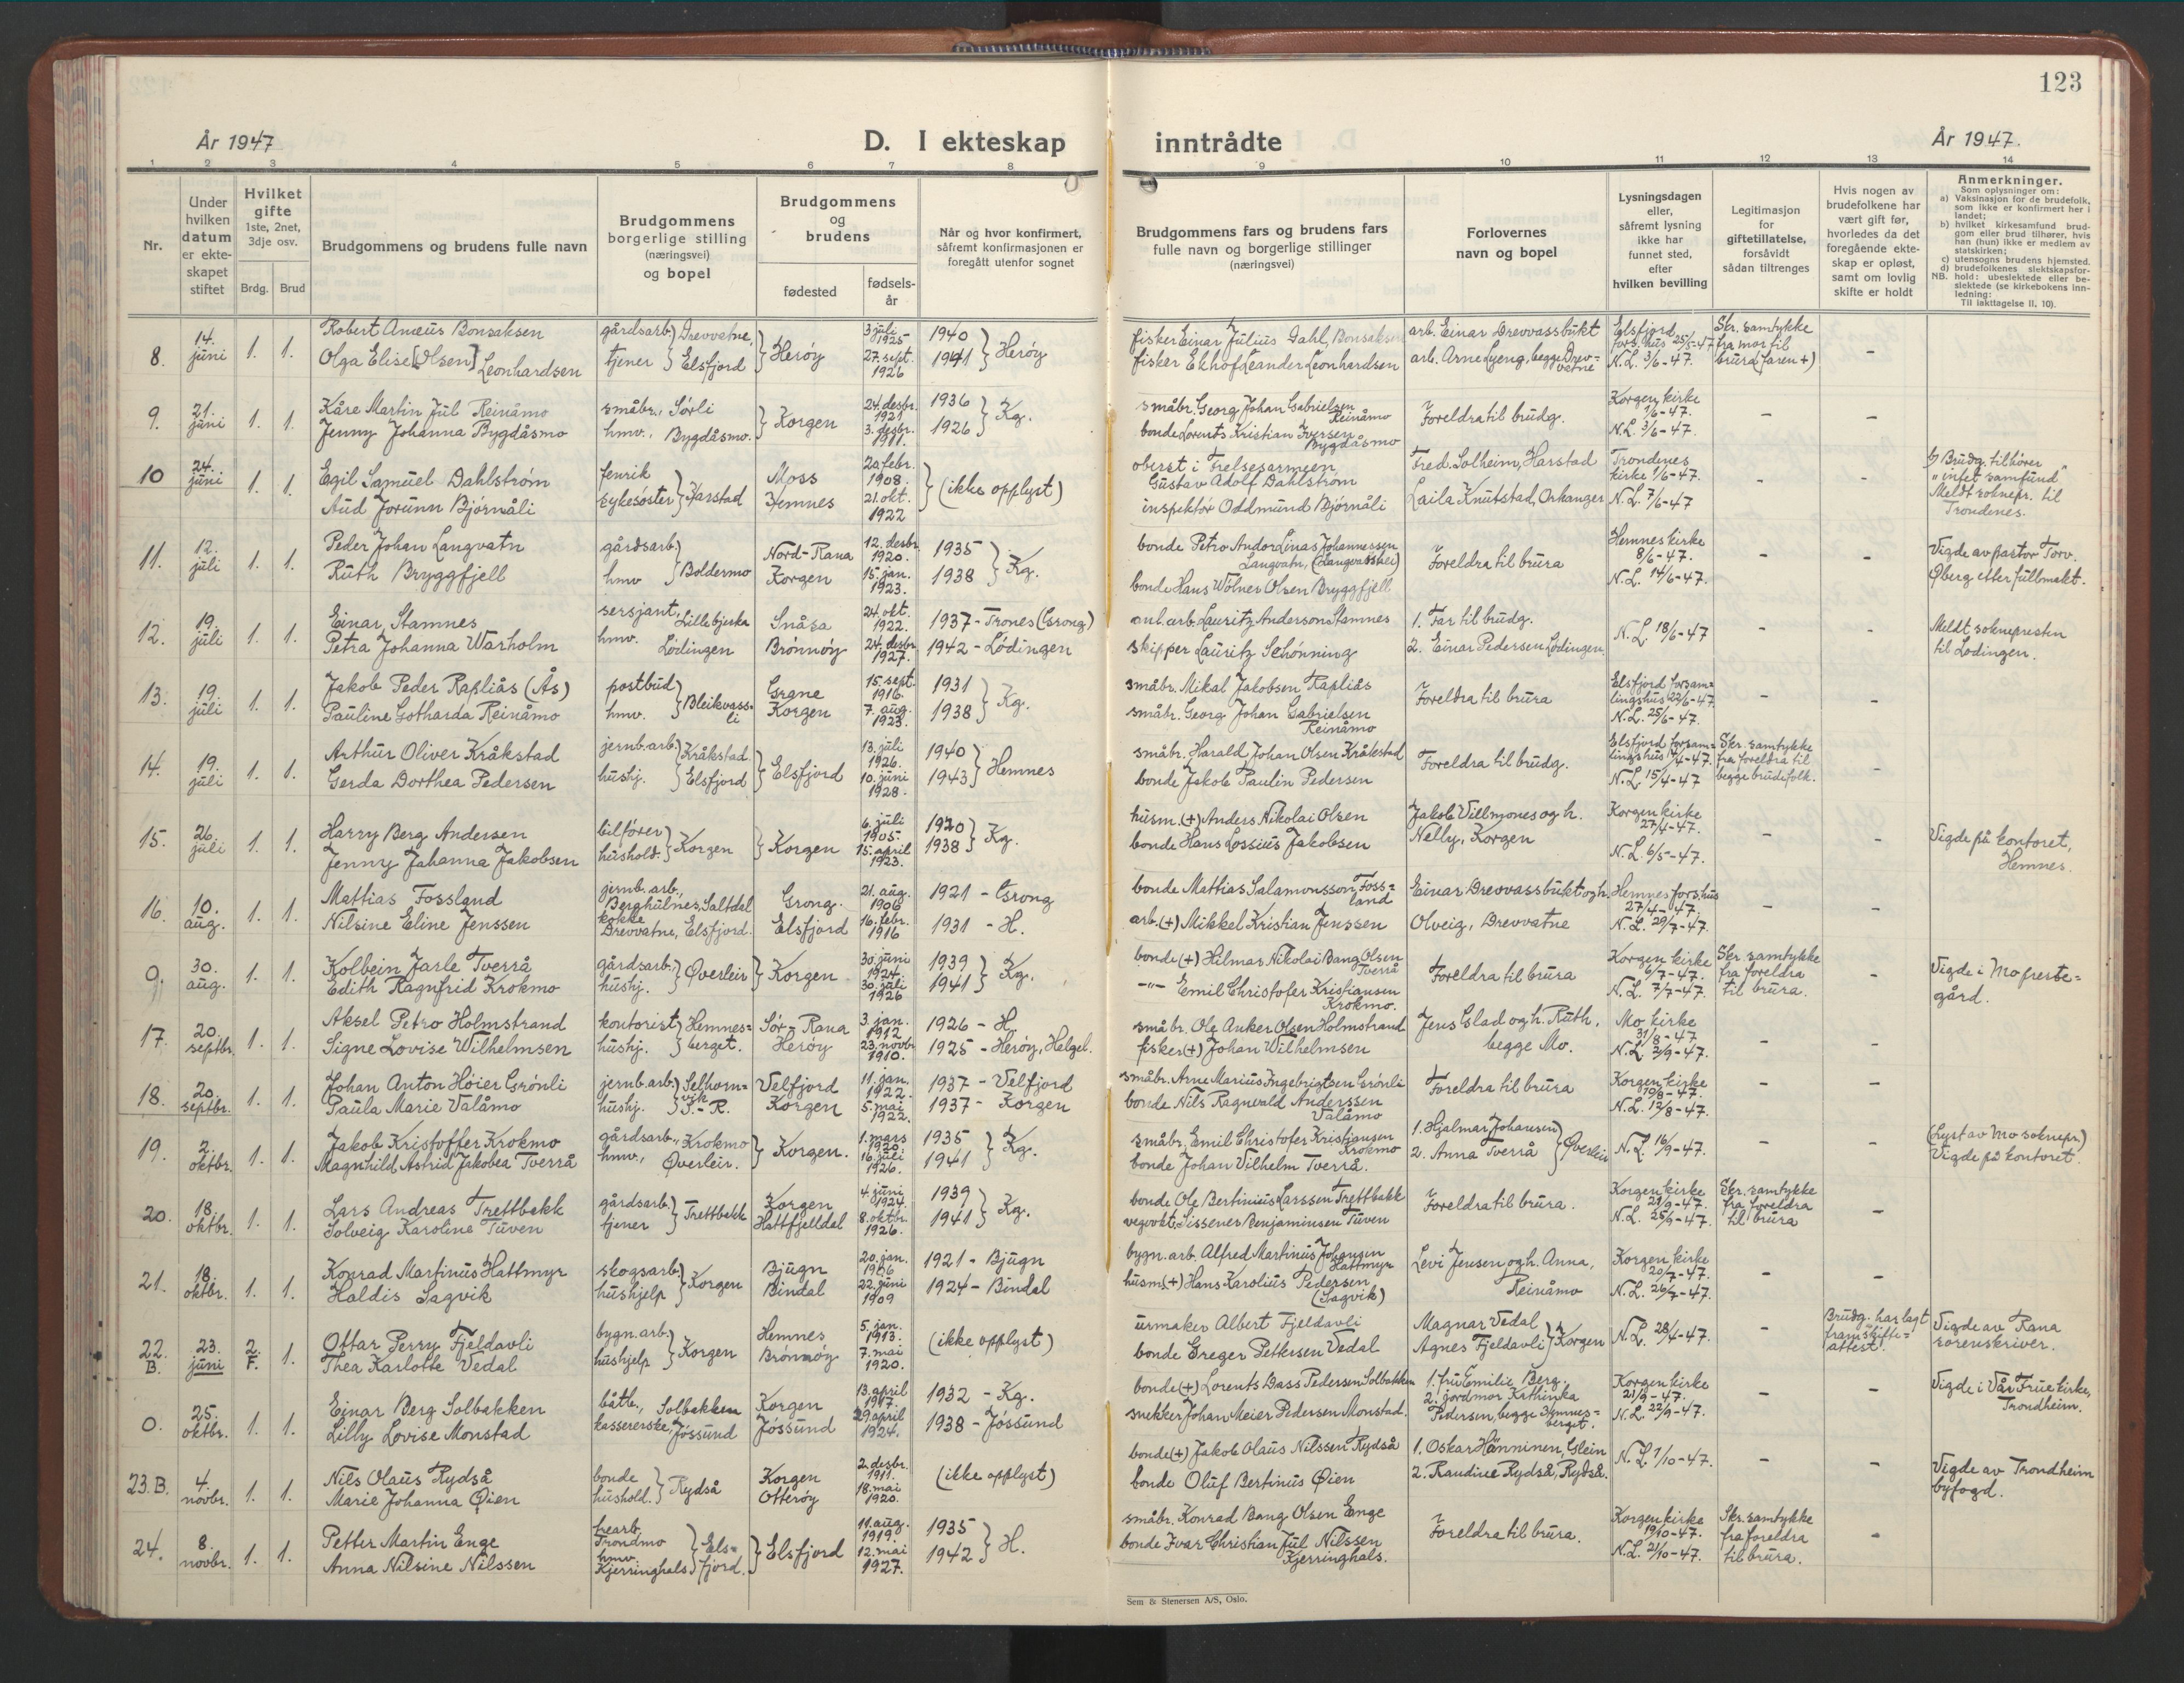 123
År 1947
D. I ekteskap inntrådte
År 1947.
1 2 3 4 5 6 7 8 9 10 11 12 13 14
Nr.
Under hvilken datum er ekteskapet stiftet
Hvilket gifte 1ste, 2net, 3dje osv.
Brdg. Brud
Brudgommens og brudens fulle navn
Brudgommens borgerlige stilling (næringsvei) og bopel
Brudgommens og brudens
fødested
fødselsår
Når og hvor konfirmert, såfremt konfirmasjonen er foregått utenfor sognet
Brudgommens fars og brudens fars fulle navn og borgerlige stillinger (næringsvei)
Forlovernes navn og bopel
Lysningsdagen eller, såfremt lysning ikke har funnet sted, efter hvilken bevilling
Legitimasjon for giftetillatelse, forsåvidt sådan tiltrenges
Hvis nogen av brudefolkene har vært gift før, hvorledes da det foregående ekteskap er opløst, samt om lovlig skifte er holdt
Anmerkninger.
Som oplysninger om:
a) Vaksinasjon for de brudefolk, som ikke er konfirmert her i landet;
b) hvilket kirkesamfund brudgom eller brud tilhører, hvis han (hun) ikke er medlem av statskirken;
c) utensogns brudens hjemsted.
d) brudefolkenes slektskapsforhold: ubeslektede eller beslektede (se kirkebokens innledning:
NB.
Til iakttagelse II, 10).
8. 14. juni 1. 1. Robert Anæus Bonsaksen gårdsarb. Drevvatne, Herøy 3 juli 1925 1940 Herøy fisker Einar Julius Dahl, Bonsaksen arb. Einar Drevvassbukt Elsfjord fors.hus 25/5-47 Skr. samtykke fra mor til
Olga Elise [Olsen] Leonhardsen tjener Elsfjord 27. sept. 1926 1941 fisker Ekhof Leander Leonhardsen arb. Arne Lyeng, begge Drevvatne N.L. 3/6-47. brura (faren +) -
9. 21. juni 1. 1. Kåre Martin Jul Reinåmo småbr., Sørli Korgen 24. desbr. 1921 1936 Kg. småbr. Georg Johan Gabrielsen Reinåmo Foreldra til brudg. Korgen kirke 1/6-47. - -
Jenny Johanna Bygdåsmo hmv., Bygdåsmo. 3. desbr. 1911. 1926 bonde Lorents Kristian Iversen Bygdåsmo N.L. 3/6-47.
10 24. juni 1. 1. Egil Samuel Dahlstrøm fenrik Harstad Moss 20 febr. 1908. (ikke opplyst) oberst i Frelsesarmeen Gustav Adolf Dahlstrøm Fred. Solheim, Harstad Trondenes kirke 1/6-47. - - b) Brudg. tilhører "intet samfund"
Aud Jorunn Bjørnåli sykesøster Hemnes 21. okt. 1922 inspektør Oddmund Bjørnåli Laila Knutstad, Orkanger N.L. 7/6-47 Meldt soknepr. til Trondenes.
11. 12. juli 1. 1. Peder Johan Langvatn gårdsarb. Boldermo Nord-Rana 12. desbr 1920. 1935 Kg. bonde Petro Andor Linas Johannessen Langvatn, Foreldra til brura Hemnes kirke 8/6-47. - - Vigde av pastor Torv.
Ruth Bryggfjell hmv Korgen 15. jan. 1923. 1938 bonde Hans Wølner Olsen Bryggfjell N.L. 14/6-47. Øberg etter fullmakt.
12. 19. juli 1. 1. Einar Stamnes sersjant, Lillebjerka Snåsa 24 okt. 1922. 1937 - Trones (Grong) anl.arb. Lauritz Anderson Stamnes 1. Far til brudg. N.L. 18/6-47 - - Meldt soknepresten
Petra Johanna Warholm hmv. Lødingen Brønnøy 24. desbr 1927. 1942 - Lødingen skipper Lauritz Schønning 2. Einar Pedersen Lødingen. til Lødingen.
13. 19. juli 1. 1. Jakob Peder Rapliås (Ås) postbud Bleikvassli Grane 15. sept. 1916. 1931 Kg. småbr. Mikal Jakobsen Rapliås Foreldra til brura Elsfjord forsamlingshus 22/6-47. - -
Pauline Gotharda Reinåmo hmv. Korgen 7. aug. 1923. 1938 småbr. Georg Johan Gabrielsen Reinåmo N.L. 25/6-47.
14. 19. juli 1. 1. Arthur Oliver Kråkstad jernb.arb. Kråkstad Elsfjord 13. juli 1926. 1940 Hemnes småbr. Harald Johan Olsen Kråkstad Foreldra til brudg. Elsfjord forsamlingshus 7/4-47. Skr. samtykke fra foreldra til
Gerda Dorthea Pedersen hushj. Elsfjord 10. juni 1928. 1943 bonde Jakob Paulin Pedersen N.L. 15/4-47 begge brudefolk. -
15. 26. juli 1. 1. Harry Berg Andersen bilfører Korgen Korgen 6. juli 1905. 1920 Kg. husm. (+) Anders Nikolai Olsen Jakob Villmones og h. Korgen kirke 27/4-47. - - Vigde på kontoret,
Jenny Johanna Jakobsen hushold. 15. april 1923. 1938 bonde Hans Lossius Jakobsen Nelly, Korgen N.L. 6/5-47. Hemnes.
16. 10. aug. 1. 1. Mattias Fossland jernb.arb., Berghulnes, Saltdal Grong. 21. aug. 1906 1921 - Grong bonde Mattias Salamonsson Fossland Einar Drevvassbukt og h. Hemnes fors.hus 27/4-47. - -
Nilsine Eline Jenssen kokke Drevvatne, Elsfjord. Elsfjord 16. febr. 1916 1931 - H. arb. (+) Mikkel Kristian Jenssen Olveig, Drevvatne N.L. 29/7-47.
0. 30. aug. 1. 1. Kolbein Jarle Tverrå gårdsarb. Øverleir Korgen 30. juni 1924. 1939 Kg. bonde (+) Hilmar Nikolai Bang Olsen Tverrå Foreldra til brura Korgen kirke 6/7-47. Skr. samtykke fra foreldra - Vigde i Mo preste-
Edith Ragnfrid Krokmo hushj. 30. juli 1926 1941 -"- Emil Christofer Kristiansen Krokmo. N.L. 7/7-47. til brura. gård.
17. 20. septbr. 1. 1. Aksel Petro Holmstrand kontorist Hemnesberget. Sør-Rana 3. jan. 1912. 1926 - H småbr. Ole Anker Olsen Holmstrand Jens Glad og h. Ruth, Mo kirke 31/8-47 - -
Signe Lovise Wilhelmsen hushj. Herøy 23. novbr 1910. 1925 - Herøy, Helgel. fisker (+) Johan Wilhelmsen begge Mo. N.L. 2/9-47.
18. 20. septbr. 1. 1. Johan Anton Høier Grønli jernb.arb. Selhornvik Velfjord 11. jan. 1922. 1937 - Velfjord småbr. Arne Marius Ingebrigtsen Grønli Foreldra til brura Korgen kirke 10/8-47. - -
Paula Marie Valåmo hushj. S.-R. Korgen 5. mai 1922. 1937 - Korgen bonde Nils Ragnvald Anderssen Valåmo N.L. 12/8-47.
19. 2. oktbr. 1. 1. Jakob Kristoffer Krokmo gårdsarb., Krokmo Korgen. 1. mars 1920 1935 Kg. småbr. Emil Christofer Kristiansen Krokmo 1. Hjalmar Johansen Øverleir N.L. 16/9-47. - - (Lyst av Mo soknepr.)
Magnhild Astrid Jakobea Tverrå hmv., Øverleir. 16. juli 1926. 1941 bonde Johan Vilhelm Tverrå. 2. Anna Tverrå Vigde på kontoret.
20. 18. oktbr. 1. 1. Lars Andreas Trettbakk gårdsarb. Trettbakk Korgen 4. juni 1924. 1939 Kg. bonde Ole Bertinius Larssen Trettbakk Foreldra til brura. Korgen kirke 21/9-47. Skr. samtykke fra foreldra
Solveig Karoline Tuven tjener Hattfjelldal 8. oktbr. 1926. 1941 vegvokt. Sissener Benjaminsen Tuven N.L. 25/9-47. til brura -
21. 18. oktbr. 1. 1. Konrad Martinus Hattmyr skogsarb. Korgen Bjugn 20. jan. 1906 1921 - Bjugn bygn.arb. Alfred Martinus Johansen Hattmyr Levi Jensen og h. Anna, Korgen kirke 20/7-47. - -
Haldis Sagvik hushjelp Bindal 22. juni 1909 1924 - Bindal husm (+) Hans Karolius Pedersen (Sagvik) Reinåmo N.L. 26/7-47.
22. B. 23. juni 2. F. 1. Ottar Perry Fjeldavli bygn.arb. Korgen Hemnes 5. jan. 1913. (ikke opplyst) urmaker Albert Fjeldavli Magnar Vedal Korgen N.L. 28/4-47. - Brudg. har lagt fram skifteattest. Vigde av Rana
Thea Karlotte Vedal hushjelp Brønnøy 7. mai 1920. bonde Greger Pettersen Vedal Agnes Fjeldavli sorenskriver.
0. 25. oktbr. 1. 1. Einar Berg Solbakken båtb., Solbakken Korgen 13. april 1917. 1932 - Kg. bonde (+) Lorents Dass Pedersen Solbakken 1. fru Emilie Berg. Korgen kirke 21/9-47. - - Vigde i Vår Frue kirke,
Lilly Lovise Monstad kassererske, Jøssund Jøssund 29. april 1924. 1938 - Jøssund snekker Johan Meier Pedersen Monstad. 2. jordmor Kathinka Pedersen, begge Hemnesberget. N.L. 22/9-47. Trondheim.
23. B. 4. novbr. 1. 1. Nils Olaus Rydså bonde Rydså Korgen 2. desbr. 1911. (ikke opplyst) bonde (+) Jakob Olaus Nilssen Rydså 1. Oskar Hänninen, Glein N.L. 1/10-47. - - Vigde av Trondheim
Marie Johanna Øien hushold. Otterøy 18. mai 1920. bonde Oluf Bertinius Øien 2. Raudine Rydså, Rydså. byfogd.
24. 8. novbr. 1. 1. Petter Martin Enge Trondmo Elsfjord. Elsfjord 11. aug. 1919. 1935 H. småbr. Konrad Bang Olsen Enge Foreldra til brura. Korgen kirke 19/10-47. Skr. samtykke fra foreldra
Anna Nilsine Nilssen hmv. Kjerringhals 12. mai 1927. 1942 bonde Ivar Christian Jul Nilssen Kjerringhals. N.L. 21/10-47. til brura. -
Sem & Stenersen A/S, Oslo.